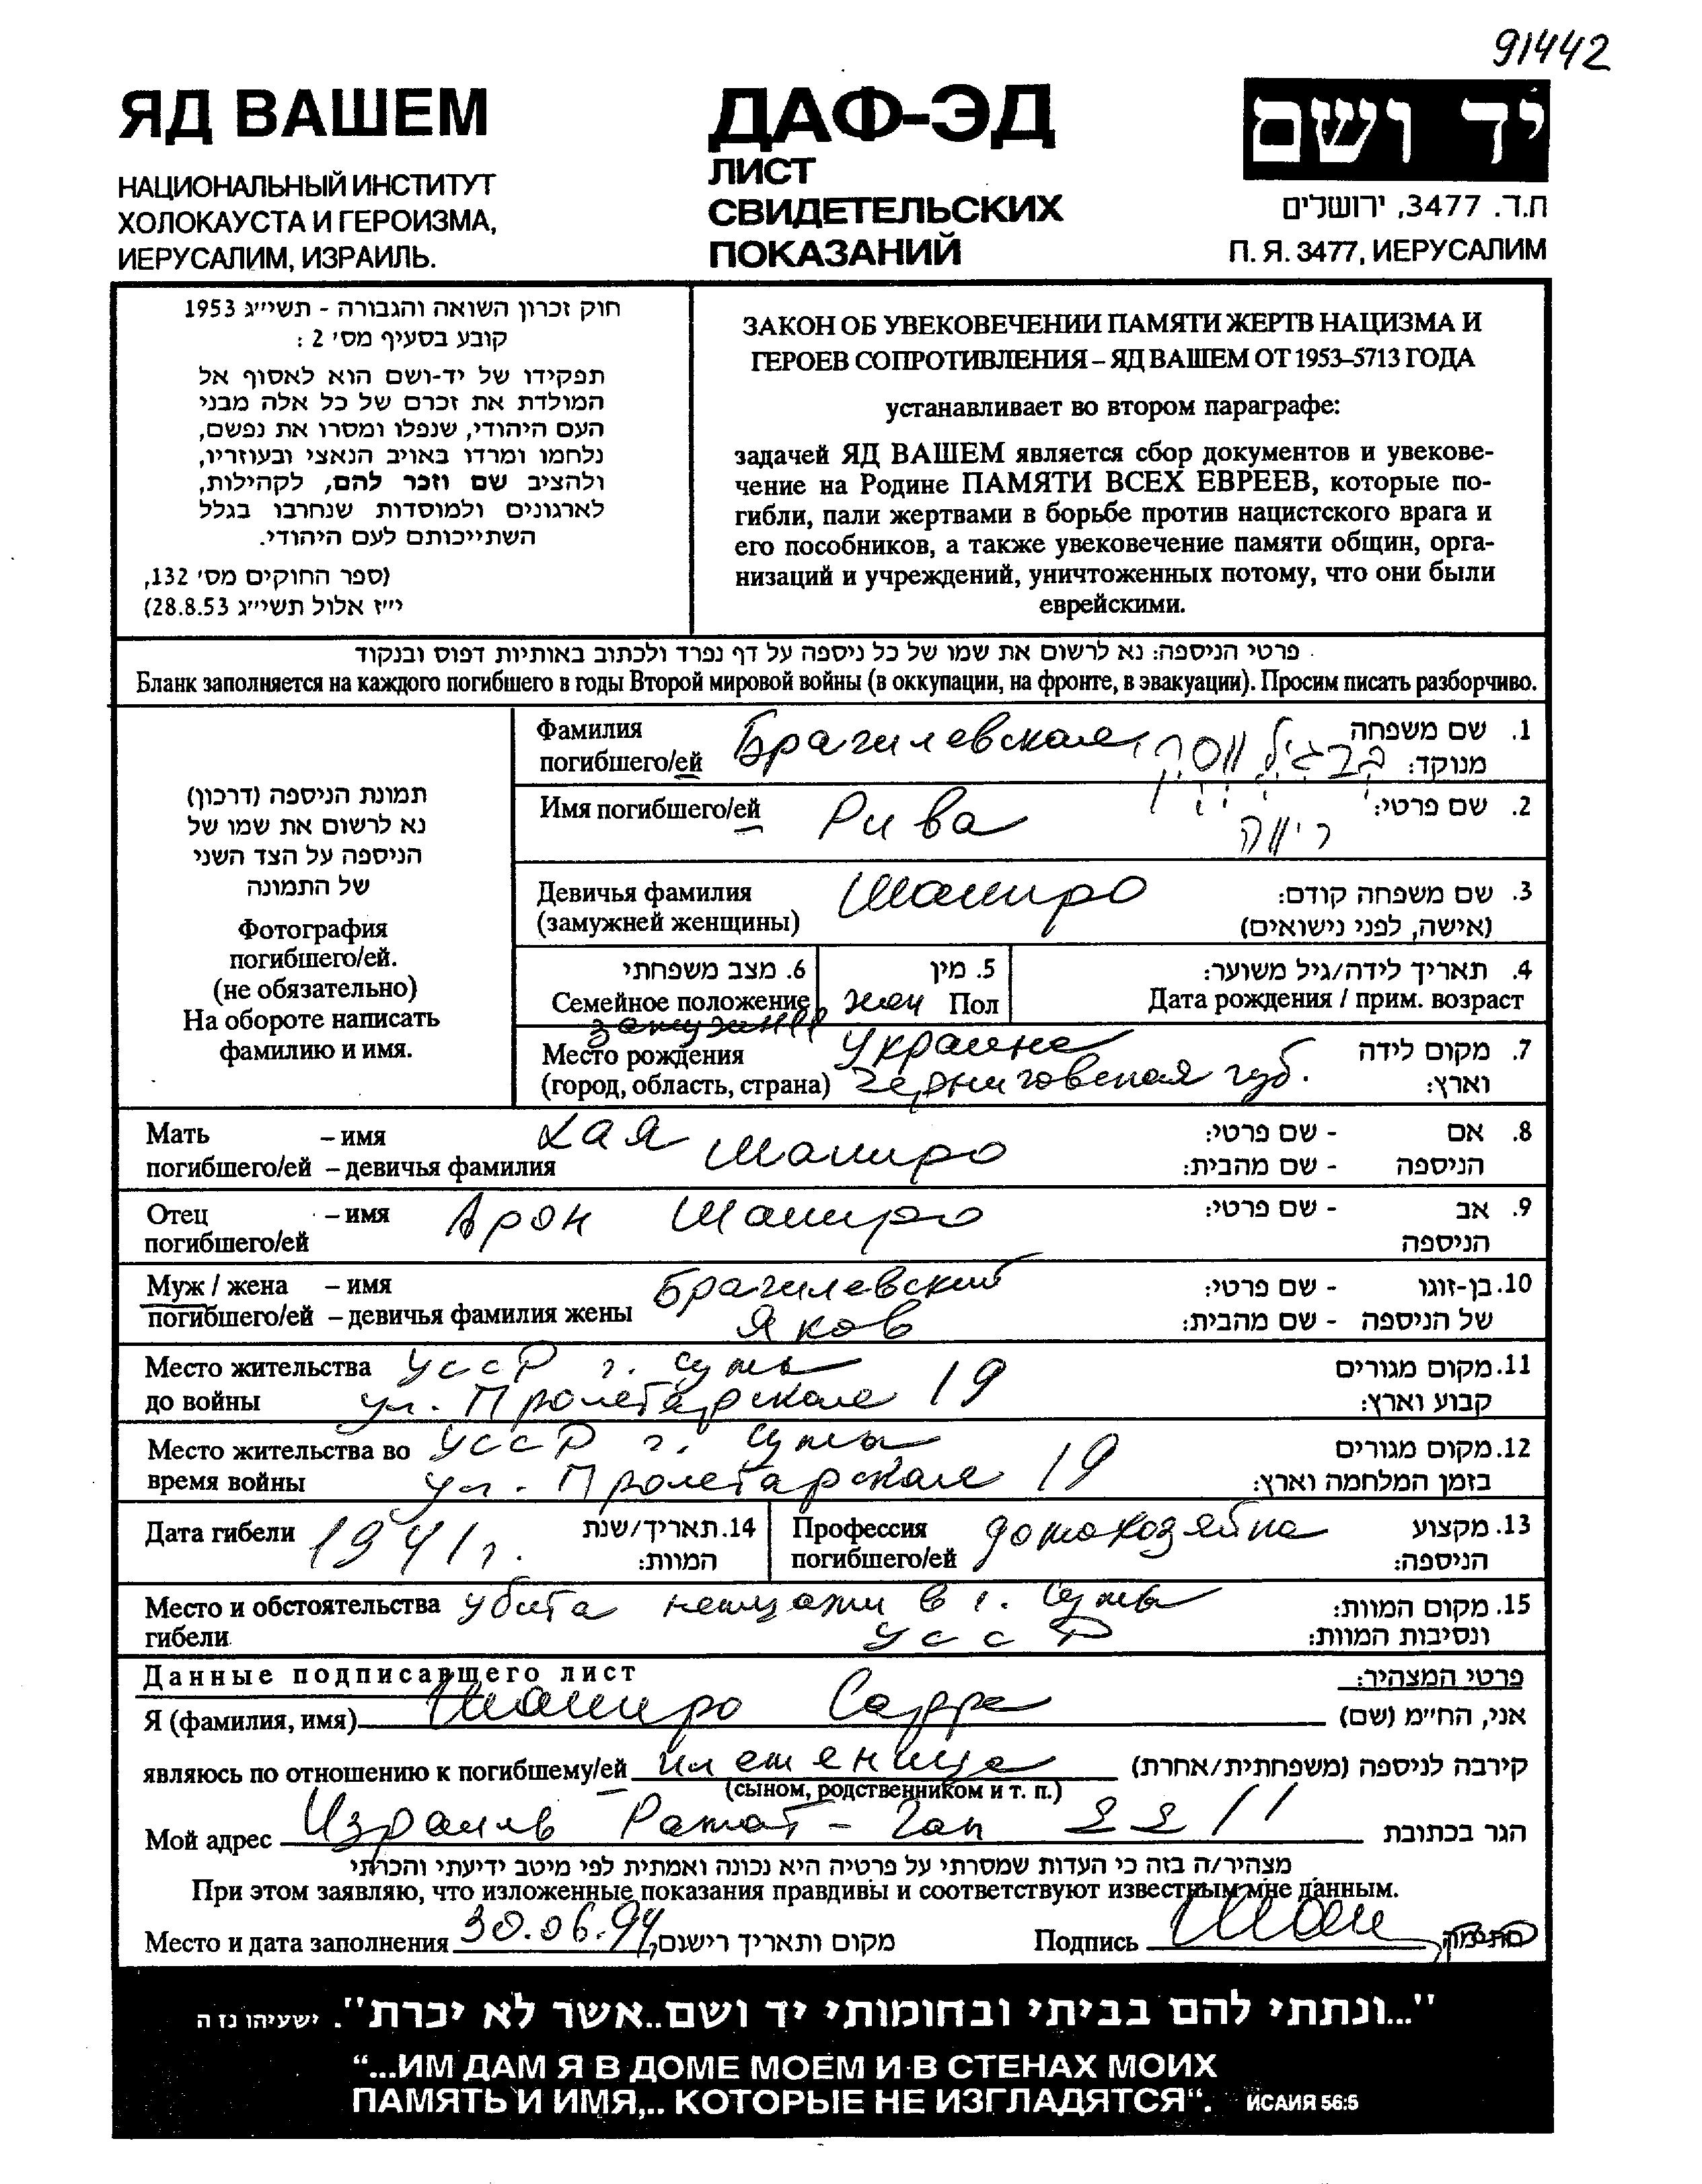 91442
ЯД ВАШЕМ
НАЦИОНАЛЬНЫЙ ИНСТИТУТ
ХОЛОКАУСТА И ГЕРОИЗМА,
ИЕРУСАЛИМ, ИЗРАИЛЬ.
ДАФ-ЭД
ЛИСТ
СВИДЕТЕЛЬСКИХ
ПОКАЗАНИЙ
יד ושם
ת.ד. 3477, ירושלים
П. Я. 3477, ИЕРУСАЛИМ
חוק זכרון השואה והגבורה - תשי״ג 1953
קובע בסעיף מס׳ 2 :
תפקידו של יד-ושם הוא לאסוף אל
המולדת את זכרם של כל אלה מבני
העם היהודי, שנפלו ומסרו את נפשם,
נלחמו ומרדו באויב הנאצי ובעוזריו,
ולהציב שם וזכר להם, לקהילות,
לארגונים ולמוסדות שנחרבו בגלל
השתייכותם לעם היהודי.
(ספר החוקים מס׳ 132,
י״ז אלול תשי״ג 28.8.53)
ЗАКОН ОБ УВЕКОВЕЧЕНИИ ПАМЯТИ ЖЕРТВ НАЦИЗМА И
ГЕРОЕВ СОПРОТИВЛЕНИЯ – ЯД ВАШЕМ ОТ 1953–5713 ГОДА
устанавливает во втором параграфе:
задачей ЯД ВАШЕМ является сбор документов и увекове-
чение на Родине ПАМЯТИ ВСЕХ ЕВРЕЕВ, которые по-
гибли, пали жертвами в борьбе против нацистского врага и
его пособников, а также увековечение памяти общин, орга-
низаций и учреждений, уничтоженных потому, что они были
еврейскими.
פרטי הניספה: נא לרשום את שמו של כל ניספה על דף נפרד ולכתוב באותיות דפוס ובנקוד
Бланк заполняется на каждого погибшего в годы Второй мировой войны (в оккупации, на фронте, в эвакуации). Просим писать разборчиво.
תמונת הניספה (דרכון)
נא לרשום את שמו של
הניספה על הצד השני
של התמונה
Фотография
погибшего/ей.
(не обязательно)
На обороте написать
фамилию и имя.
Фамилия Брагилевская 1. שם משפחה
погибшего/ей מנוקד:
Имя погибшего/ей Рива 2. שם פרטי:
ריווה
Девичья фамилия Шапиро 3. שם משפחה קודם:
(замужней женщины) (אישה, לפני נישואים)
6. מצב משפחתי 5. מין 4. תאריך לידה/גיל משוער:
Семейное положение жен Пол Дата рождения / прим. возраст
замужняя
Место рождения Украина 7. מקום לידה
(город, область, страна) Черниговская губ. וארץ:
Мать – имя Хая 8. אם - שם פרטי:
погибшего/ей – девичья фамилия Шапиро הניספה - שם מהבית:
Отец – имя Арон Шапиро 9. אב - שם פרטי:
погибшего/ей הניספה
Муж / жена – имя Брагилевский 10. בן-זוגו - שם פרטי:
погибшего/ей – девичья фамилия жены Яков של הניספה - שם מהבית:
Место жительства УССР г. Сумы 11. מקום מגורים
до войны ул. Пролетарская 19 קבוע וארץ:
Место жительства во УССР г. Сумы 12. מקום מגורים
время войны ул. Пролетарская 19 בזמן המלחמה וארץ:
Дата гибели 1941 г. 14. תאריך/שנת המוות:
Профессия домохозяйка 13. מקצוע
погибшего/ей הניספה:
Место и обстоятельства убита немцами в г. Сумы 15. מקום המוות:
гибели УССР ונסיבות המוות:
Данные подписавшего лист פרטי המצהיר:
Я (фамилия, имя) Шапиро Сарра אני, הח״מ (שם)
являюсь по отношению к погибшему/ей племеница קירבה לניספה (משפחתית/אחרת)
(сыном, родственником и т. п.)
Мой адрес Израиль Рамат-Ган הגר בכתובת
מצהיר/ה בזה כי העדות שמסרתי על פרטיה היא נכונה ואמתית לפי מיטב ידיעתי והכרתי
При этом заявляю, что изложенные показания правдивы и соответствуют известным мне данным.
Место и дата заполнения 30.06.94 מקום ותאריך רישום Подпись Шап חתימה
"...ונתתי להם בביתי ובחומותי יד ושם..אשר לא יכרת". ישעיהו נז ה
“...ИМ ДАМ Я В ДОМЕ МОЕМ И В СТЕНАХ МОИХ
ПАМЯТЬ И ИМЯ,.. КОТОРЫЕ НЕ ИЗГЛАДЯТСЯ“. ИСАИЯ 56:5